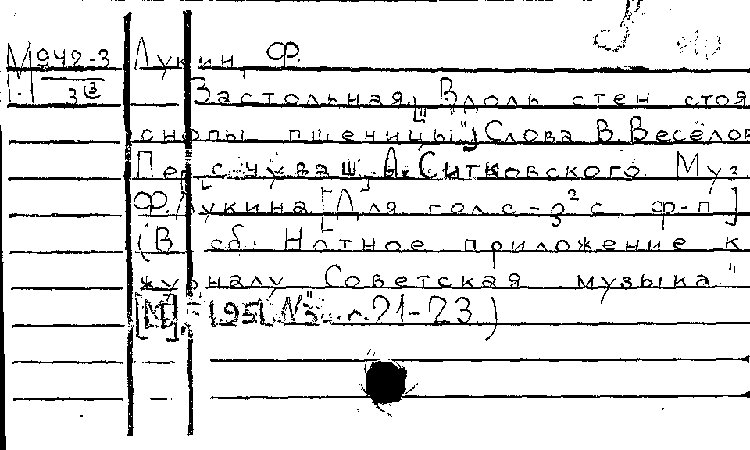 М 942-3 Лукин, Ф.
Застольная. ["Вдоль стен стоя
снопы пшеницы"] Слова В. Веселов
Пер. с чуваш. А. Ситковского. Муз.
Ф. Лукина [Для голоса с ф-п]
(В сб. Нотное приложение к
журналу "Советская музыка"
[М], 1951 №3 л. 21-23)